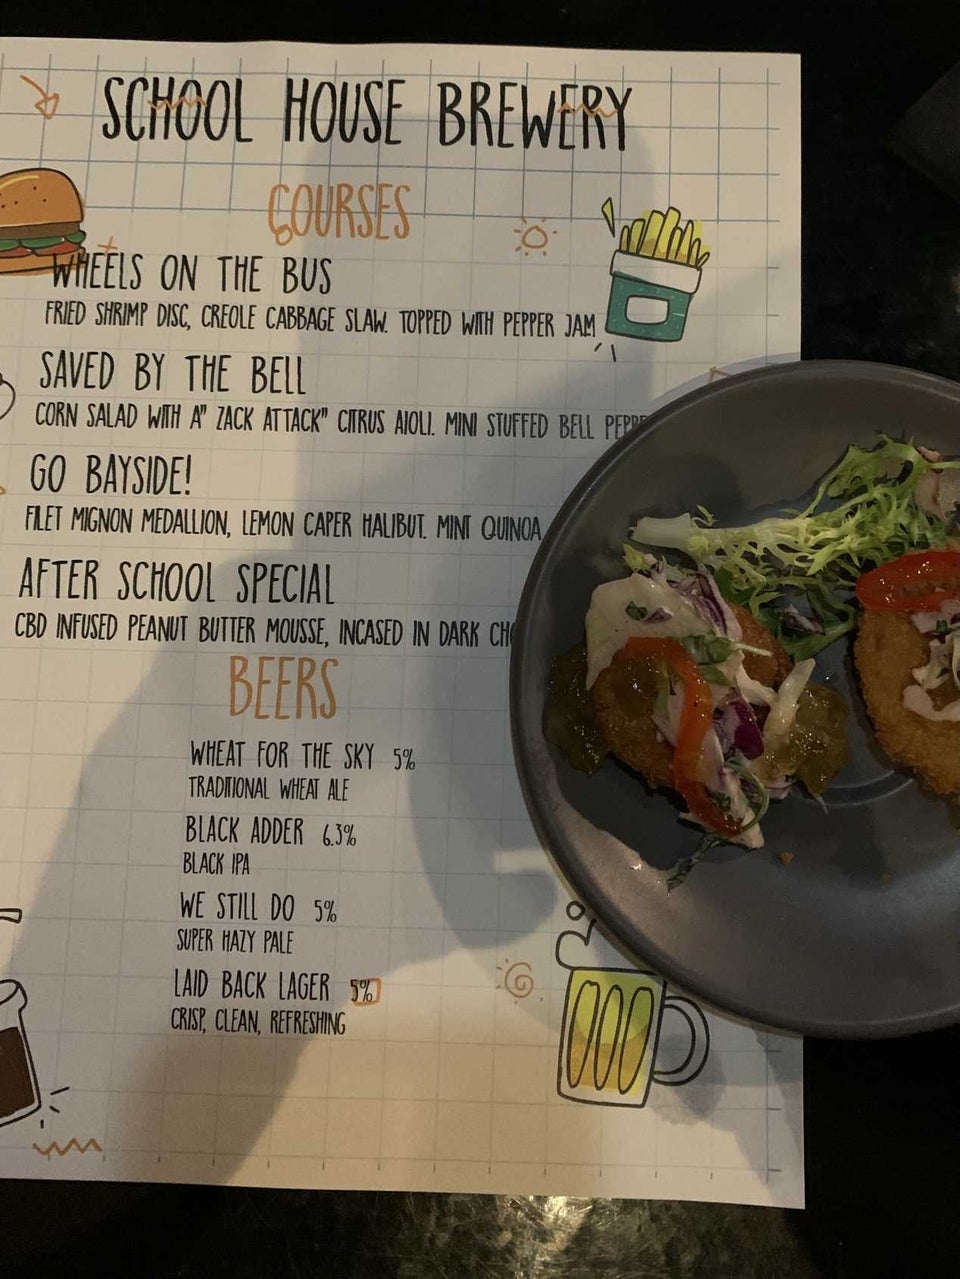 SCHOOL HOUSE BREWERY
COURSES
WHEELS ON THE BUS
FRIED SHRIMP DISC, CREOLE CABBAGE SLAW. TOPPED WITH PEPPER JAM
SAVED BY THE BELL
CORN SALAD WITH A" ZACK ATTACK" CITRUS AIOLI. MINI STUFFED BELL
GO BAYSIDE!
FILET MIGNON MEDALLION, LEMON CAPER HALIBUT. MINT QUINOA
AFTER SCHOOL SPECIAL
CBD INFUSED PEANUT BUTTER MOUSSE, INCASED IN DARK
BEERS
WHEAT FOR THE SKY 5%
TRADITIONAL WHEAT ALE
BLACK ADDER 6.3%
BLACK IPA
WE STILL DO 5%
SUPER HAZY PALE
LAID BACK LAGER 5%
CRISP, CLEAN, REFRESHING